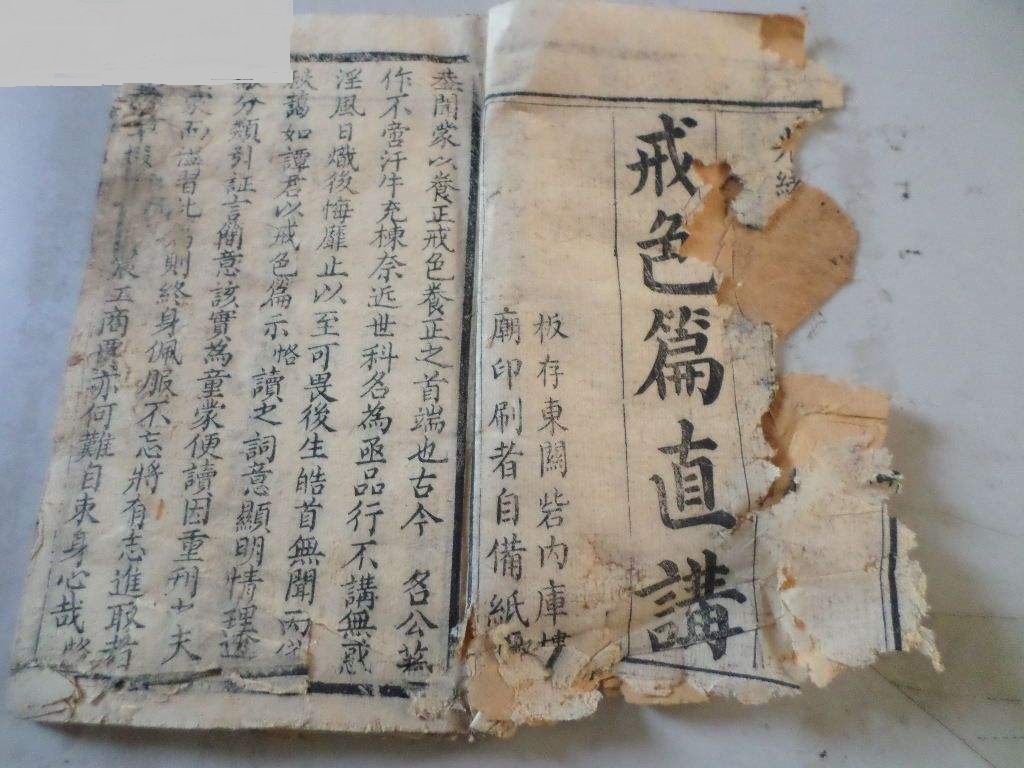 光緒
戒色篇直講
板存東關砦内庫樓
廟印刷者自備紙
蓋聞蒙以養正戒色養正之首端也古今 名公
作不啻汗牛充棟奈近世科名為亟品行不講無惑
淫風日熾後悔靡止以至可畏後生皓首無聞
謁如譚君以戒色篇示愹讀之詞意顯明情理透
分類引証言簡意該實為童蒙便讀因重刊
而誦習 則終身佩服不忘將有志進取者
工商賈亦何難自束身心哉